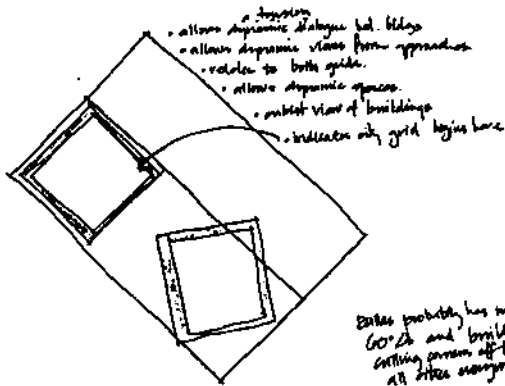 tension
• allows dynamic dialogue bet. bldgs
• allows dynamic views from approaches
• relates to both grids.
• allows dynamic spaces.
• cubist view of buildings
• indicates city grid begins here
probably has
60° and
corners off
all other